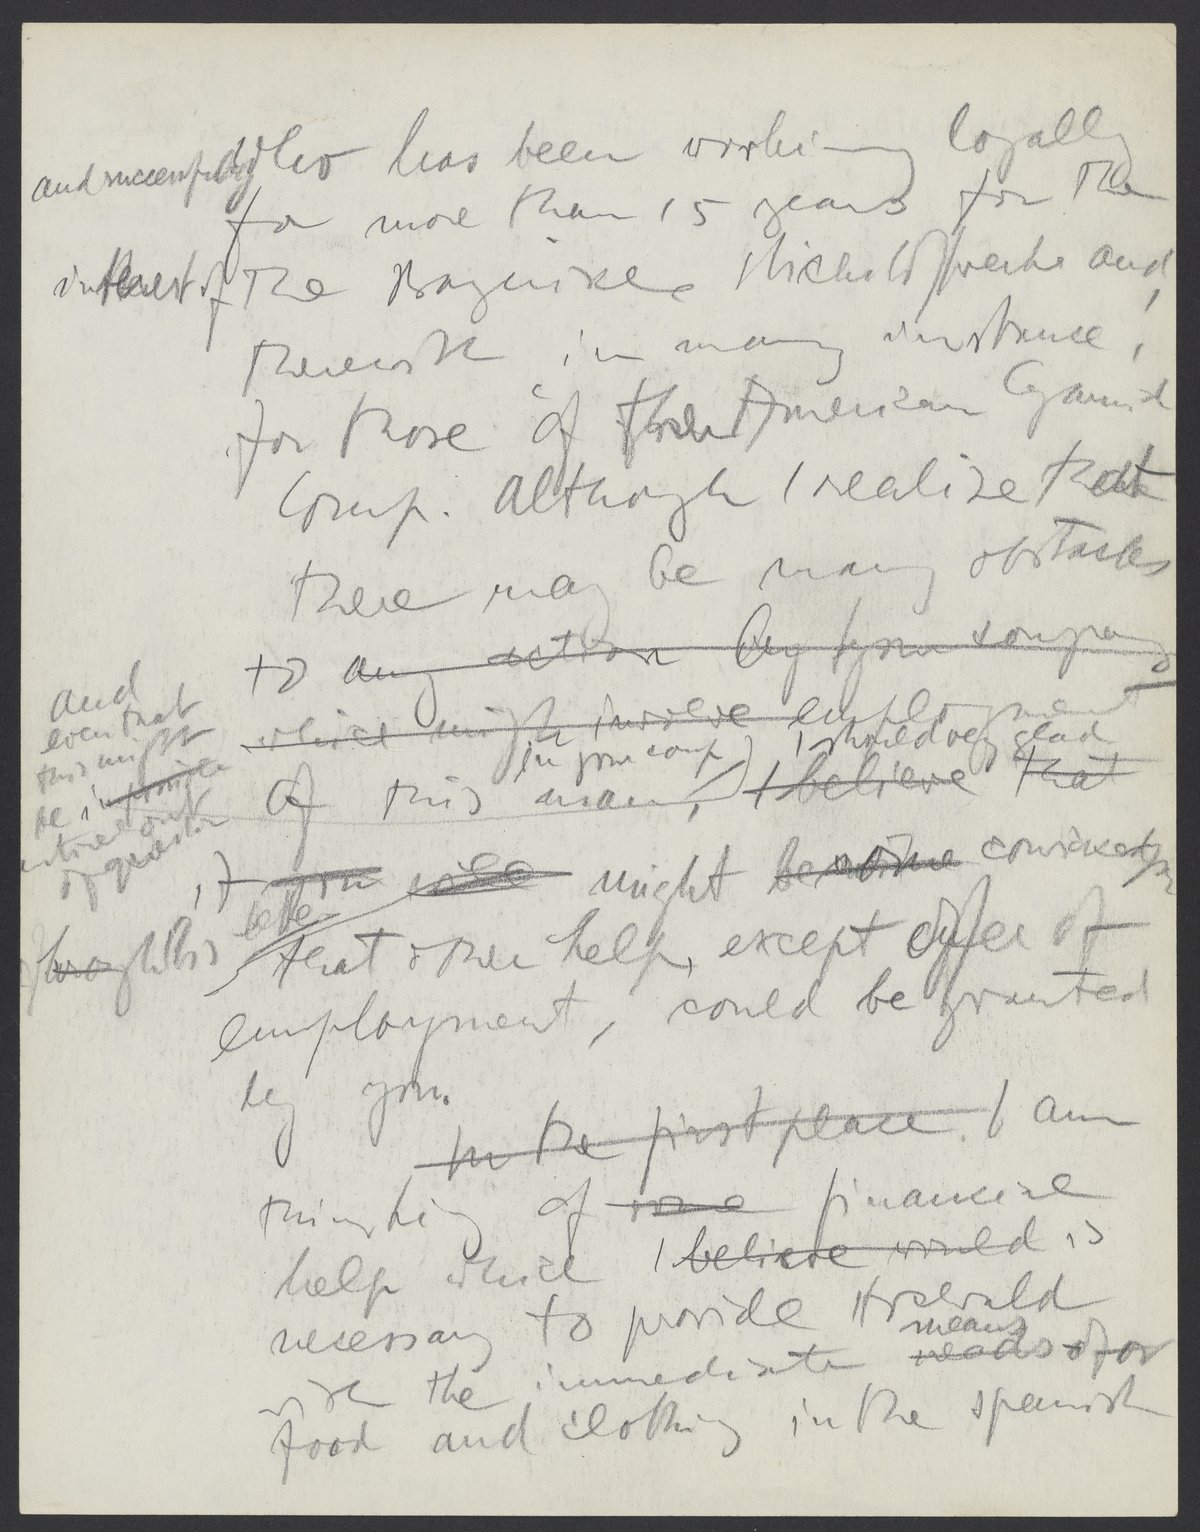 and successfully who has been working loyally
for more than 15 years for the
interest of the Bayerische Stickstoffwerke and,
therewith in many instance,
for those of the American Cyanid
Comp. Although I realize that
there may be many obstacles
to any action by your company
which might involve employment
in your comp) I should very glad
of this man, I believe that
and
even that
this might
be
entire out
of question
if you will might become convinced
better
through this
that other help, except offer of
employment, could be granted
by you.
In the first place. I am
thinking of some financial
help which I believe would is
necessary to provide
means
with the immediate needs of for
food and clothing in the Spanish